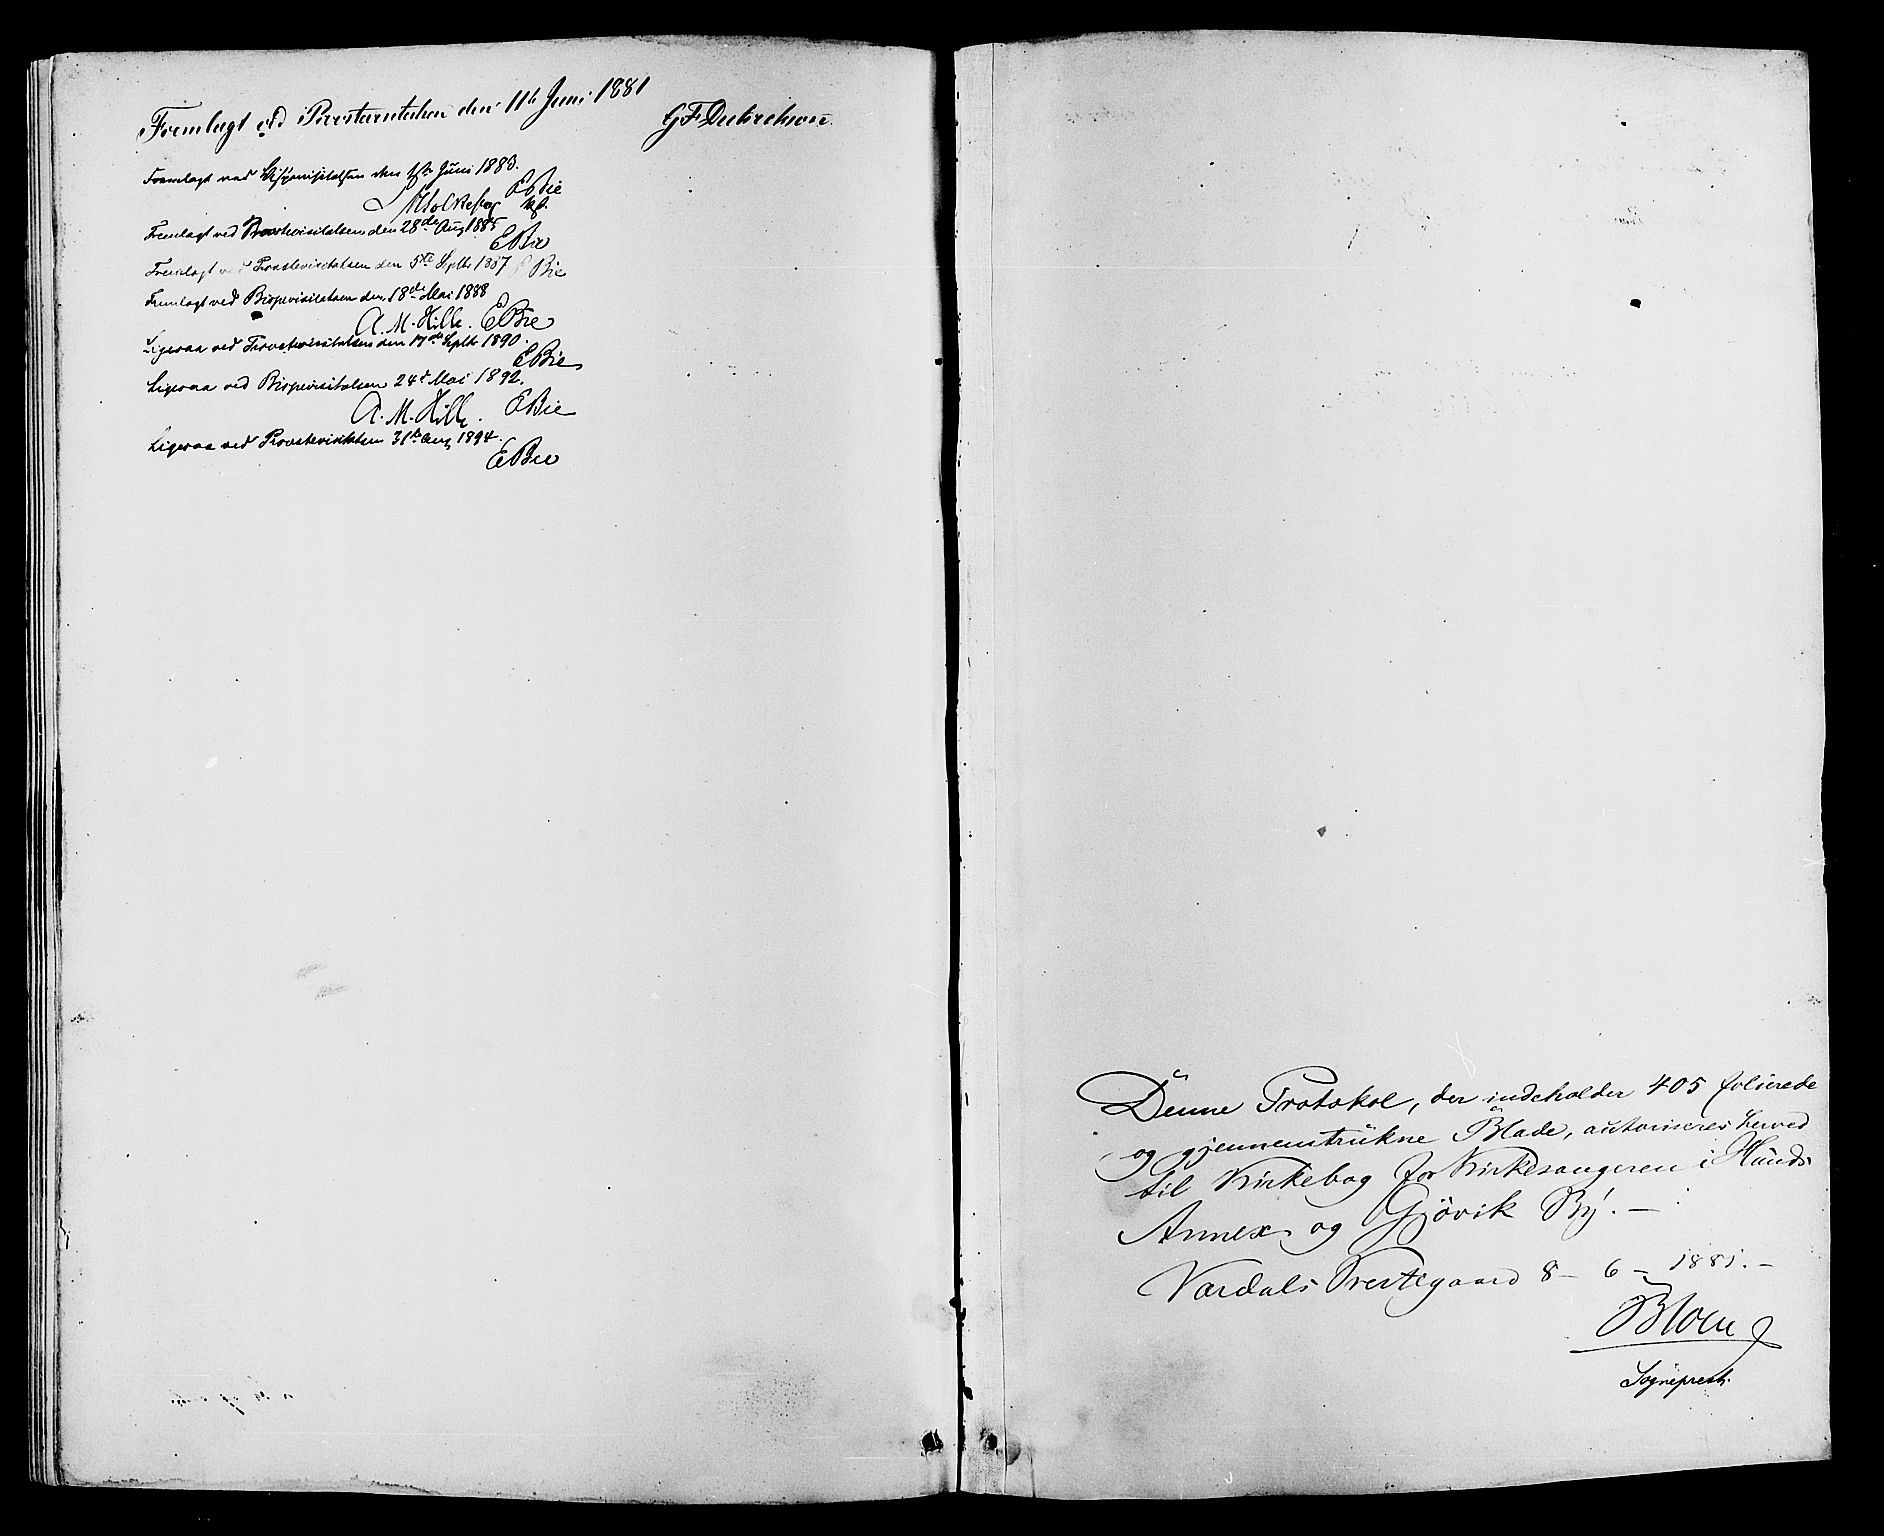 Fremlagt ved den 11te Juni 1881
Fremlagt ved Bispevisitatsen den Juni 1883.
EBie
Fremlagt ved Provstevisitatsen den 28de Aug 1885
EBie
Fremlagt ved Provstevisitatsen den 5te Septbr 1887 E Bie
Fremlagt ved Bispevisitatsen den 18de Mai 1888
A. M. Hille. EBie
Ligesaa ved Provstevisitatsen den 17de Septbr 1890.
EBie
Ligesaa ved Bispevisitatsen 24de Mai 1892.
A. M. Hille. EBie
Ligesaa ved Provstevisitatsen 31te Aug 1894.
EBie
Denne Protokol, der indeholder 405 folierede
og gjennemtrukne Blade, autoriseres herved
til Kirkebog for Kirkesangeren i Hunds
Annex og Gjövik By. —
Vardals Prestegaard 8 – 6 – 1881. –
Bloch
Sogneprest.